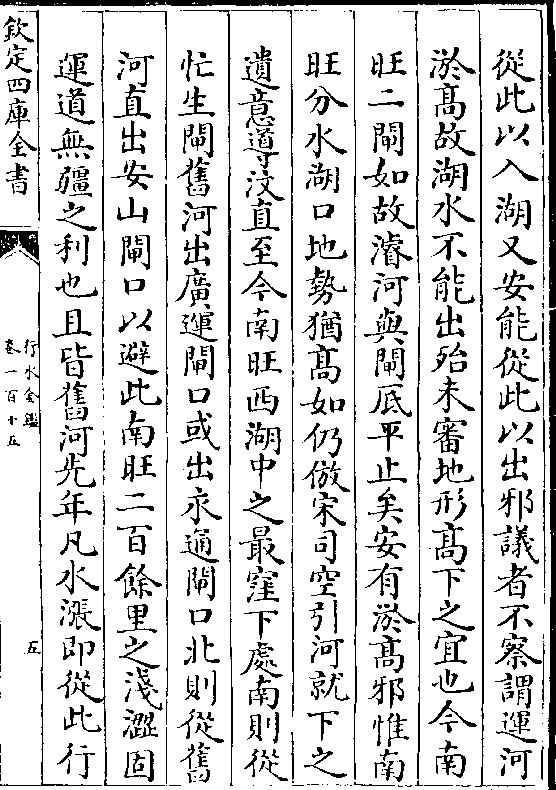 從此以入湖又安能從此以出邪議者不察謂運河
淤髙故湖水不能出殆未審地形髙下之宜也今南
旺二閘如故濬河與閘底平止矣安有淤髙邪惟南
旺分水湖口地勢猶髙如仍倣宋司空引河就下之
遺意導汶直至今南旺西湖中之最窪下處南則從
忙生閘舊河出廣運閘口或出永通閘口北則從舊
河直出安山閘口以避此南旺二百餘里之淺澀固
運道無疆之利也且皆舊河先年凡水漲即從此行
欽定四庫全書
行水金鑑
卷一百十五
五